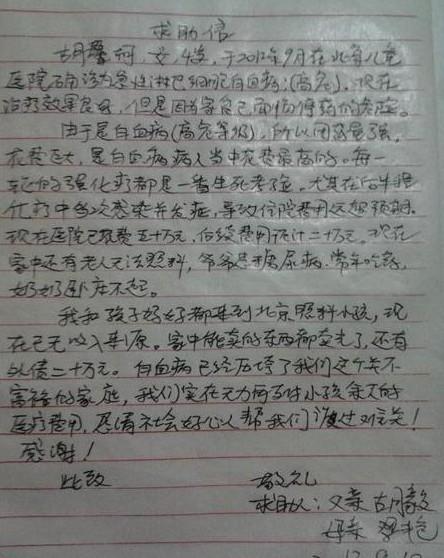 求助信
胡馨柯,女,4岁,于2012年9月在北京儿童
医院确诊为急性淋巴细胞白血病(高危),现在
治疗效果良好,但是因为家自己面临停药的危险。
由于是白血病(高危等级),所以用药量强,
花费巨大,是白血病病人当中花费最高的。每一
的强化疗都是一番生死考验。尤其在后半程
化疗中多次感染并发症,导致住院费用远超预期。
现在医院已花费五十万元,后续费用预计二十万元。现在
家中还有老人无法照料,爷爷患糖尿病,常年吃药,
奶奶卧床不起。
我和孩子妈妈都来到北京照料小孩,现
在已无收入来源。家中能卖的东西都卖光了,还有
外债二十万元。白血病已经压垮了我们这个并不
富裕的家庭,我们实在无力再支付小孩余下的
医疗费用,恳请社会好心人帮我们渡过难关!
感谢!
此致 敬礼
求助人:父亲 胡毅
母亲 艳